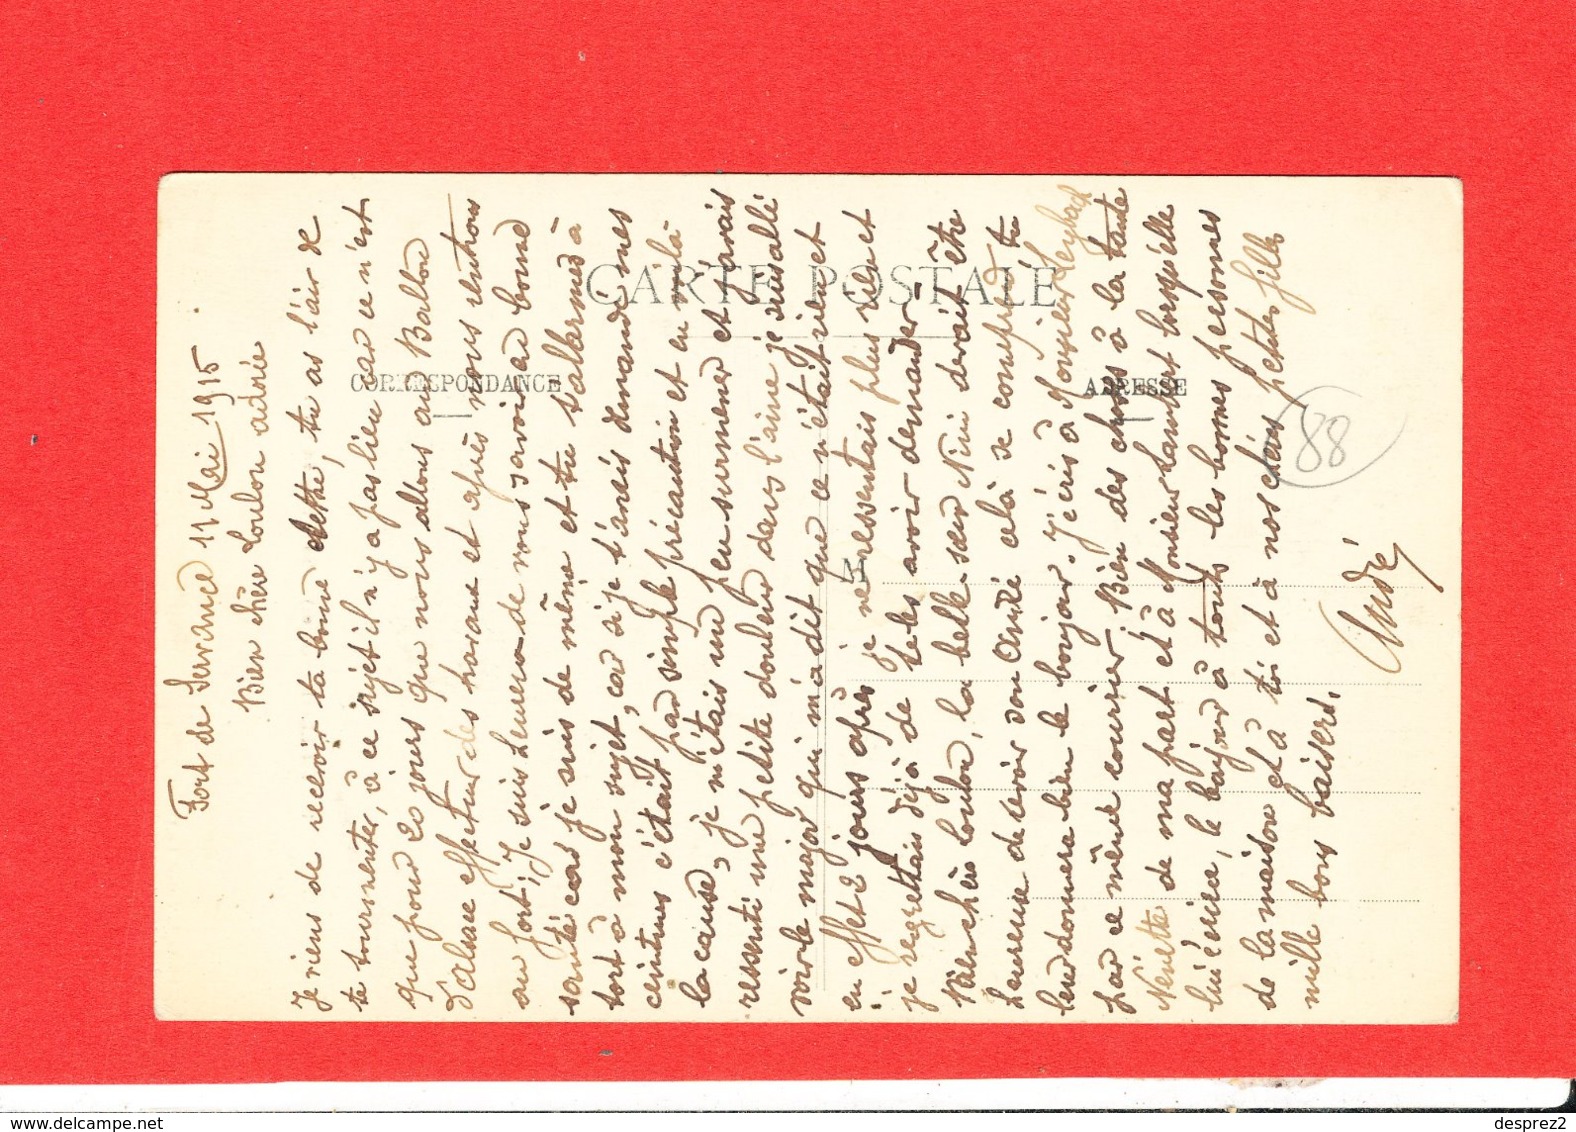 Fort de Servance 11 Mai 1915
Bien chère Loulou adorée
Je viens de recevoir ta bonne lettre, tu as l'air de
te tourmenter, à ce sujet il n'y a pas lieu car ce n'est
que pour 20 jours que nous allons au Ballon
d'Alsace effectuer des travaux et après nous rentrons
au fort; Je suis heureux de vous savoir en bonne
santé car je suis de même et tu t'allarmes à
tort à mon sujet, car si je t'avais demandé mes
ceintures c'était par simple précaution et en voilà
la cause, je m'étais un peu surmener et j'avais
ressenti une petite douleur dans l'aine je suis allé
voir le major qui m'a dit que ce n'était rien et
en effet 2 jours après je ne ressentais plus rien et
je regrettais déjà de te les avoir demander.
Bien chère Loulou, la belle-sœur Nini devait être
heureuse de voir son André cela se comprend tu
leur donnera bien le bonjour. J'écris à Monsieur Leybach
par ce même courrier. Bien des choses à la tante
Nénette de ma part et à Monsieur Lambert lorsqu'elle
lui écrira, le bonjour à toutes les bonnes personnes
de la maison et à toi et à nos chères petites filles
mille bons baisers.
André
CARTE POSTALE
CORRESPONDANCE
ADRESSE
M
88
www.delcampe.net
desprez2